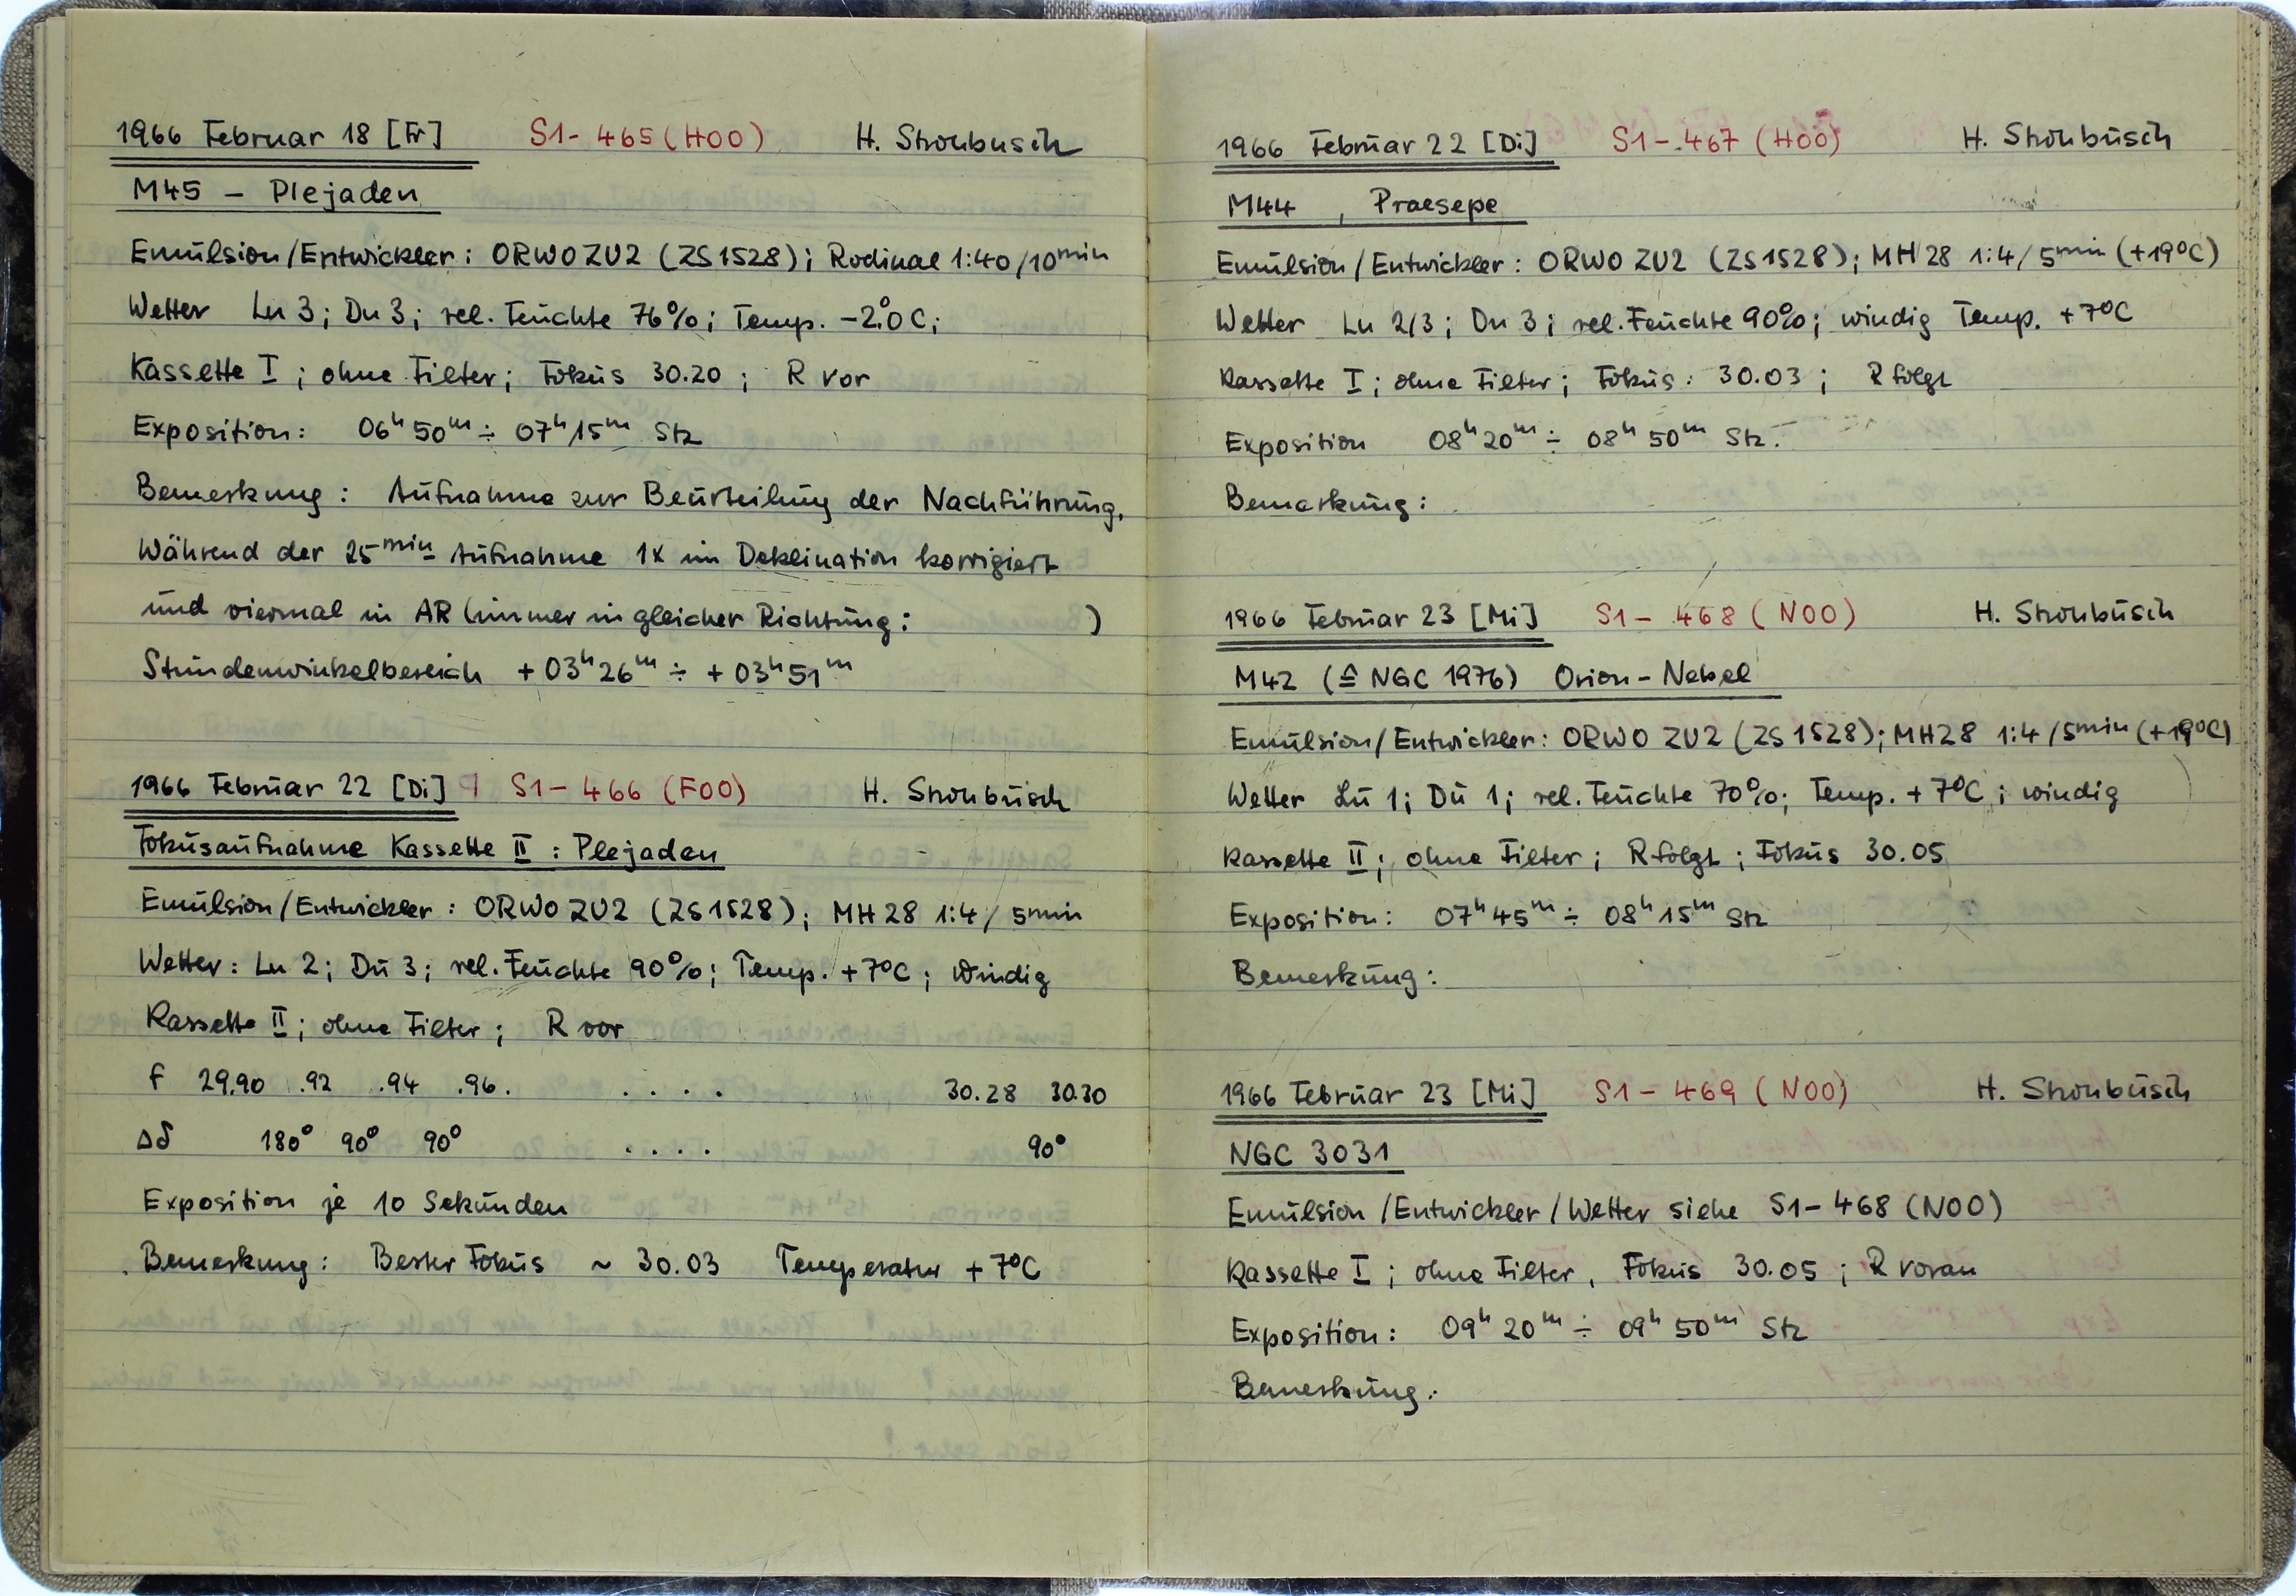 1966 Februar 18 [Fr] S1-465 (H00) H. Strohbusch
M45 – Plejaden
Emulsion/Entwickler: ORWO ZU2 (ZS1528); Rodinal 1:40/10min
Wetter Lu 3; Du 3; rel. Feuchte 76%; Temp. -2.°0 C;
Kassette I; ohne Filter; Fokus 30.20; R vor
Exposition: 06h 50m ÷ 07h 15m Stz
Bemerkung: Aufnahme zur Beurteilung der Nachführung.
Während der 25min Aufnahme 1x in Deklination korrigiert
und viermal in AR (immer in gleicher Richtung: )
Stundenwinkelbereich +03h 26m ÷ +03h 51m
1966 Februar 22 [Di] S1-466 (F00) H. Strohbusch
Fokusaufnahme Kassette II: Plejaden
Emulsion/Entwickler: ORWO ZU2 (ZS1528); MH28 1:4/5min
Wetter: Lu 2; Du 3; rel. Feuchte 90%; Temp. +7°C; windig
Kassette II; ohne Filter; R vor
f 29.90 .92 .94 .96. . . . . 30.28 30.30
Δδ 180° 90° 90° . . . . 90°
Exposition je 10 Sekunden
Bemerkung: Bester Fokus ~ 30.03 Temperatur +7°C
1966 Februar 22 [Di] S1-467 (H00) H. Strohbusch
M44, Praesepe
Emulsion/Entwickler: ORWO ZU2 (ZS1528); MH28 1:4/5min (+19°C)
Wetter Lu 2/3; Du 3; rel. Feuchte 90%; windig Temp. +7°C
Kassette I; ohne Filter; Fokus: 30.03; R folgt
Exposition 08h 20m ÷ 08h 50m Stz.
Bemerkung:
1966 Februar 23 [Mi] S1-468 (N00) H. Strohbusch
M42 (≙ NGC 1976) Orion-Nebel
Emulsion/Entwickler: ORWO ZU2 (ZS1528); MH28 1:4/5min (+19°C)
Wetter Lu 1; Du 1; rel. Feuchte 70%; Temp. +7°C; windig
Kassette II; ohne Filter; R folgt; Fokus 30.05
Exposition: 07h 45m ÷ 08h 15m Stz
Bemerkung:
1966 Februar 23 [Mi] S1-469 (N00) H. Strohbusch
NGC 3031
Emulsion/Entwickler/Wetter siehe S1-468 (N00)
Kassette I; ohne Filter, Fokus 30.05; R voran
Exposition: 09h 20m ÷ 09h 50m Stz
Bemerkung: